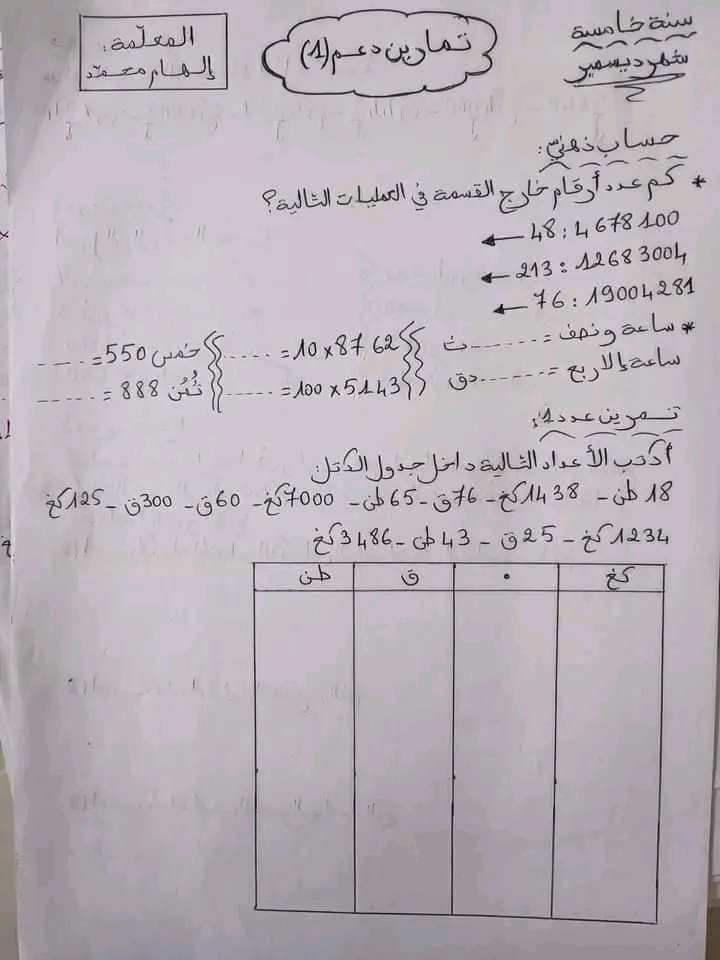 سنة خامسة
شهر ديسمبر
تمارين دعم (1)
المعلّمة:
إلهام محمّد
حساب ذهنيّ:
* كم عدد أرقام خارج القسمة في العمليات التالية؟
48 : 4678100 ←
213 : 12683004 ←
76 : 19004281 ←
* ساعة ونصف = ....... ث
ساعة إلا ربع = ...... دق
10 x 8762 = .....
100 x 5143 = ......
خمس 550 = .....
ثُمُن 888 = ......
تمرين عدد 1:
أكتب الأعداد التالية داخل جدول الكتل:
18 طن - 1438 كغ - 76 ق - 65 طن - 7000 كغ - 60 ق - 300 ق - 125 كغ
1234 كغ - 25 ق - 43 طن - 3486 كغ
كغ • ق طن